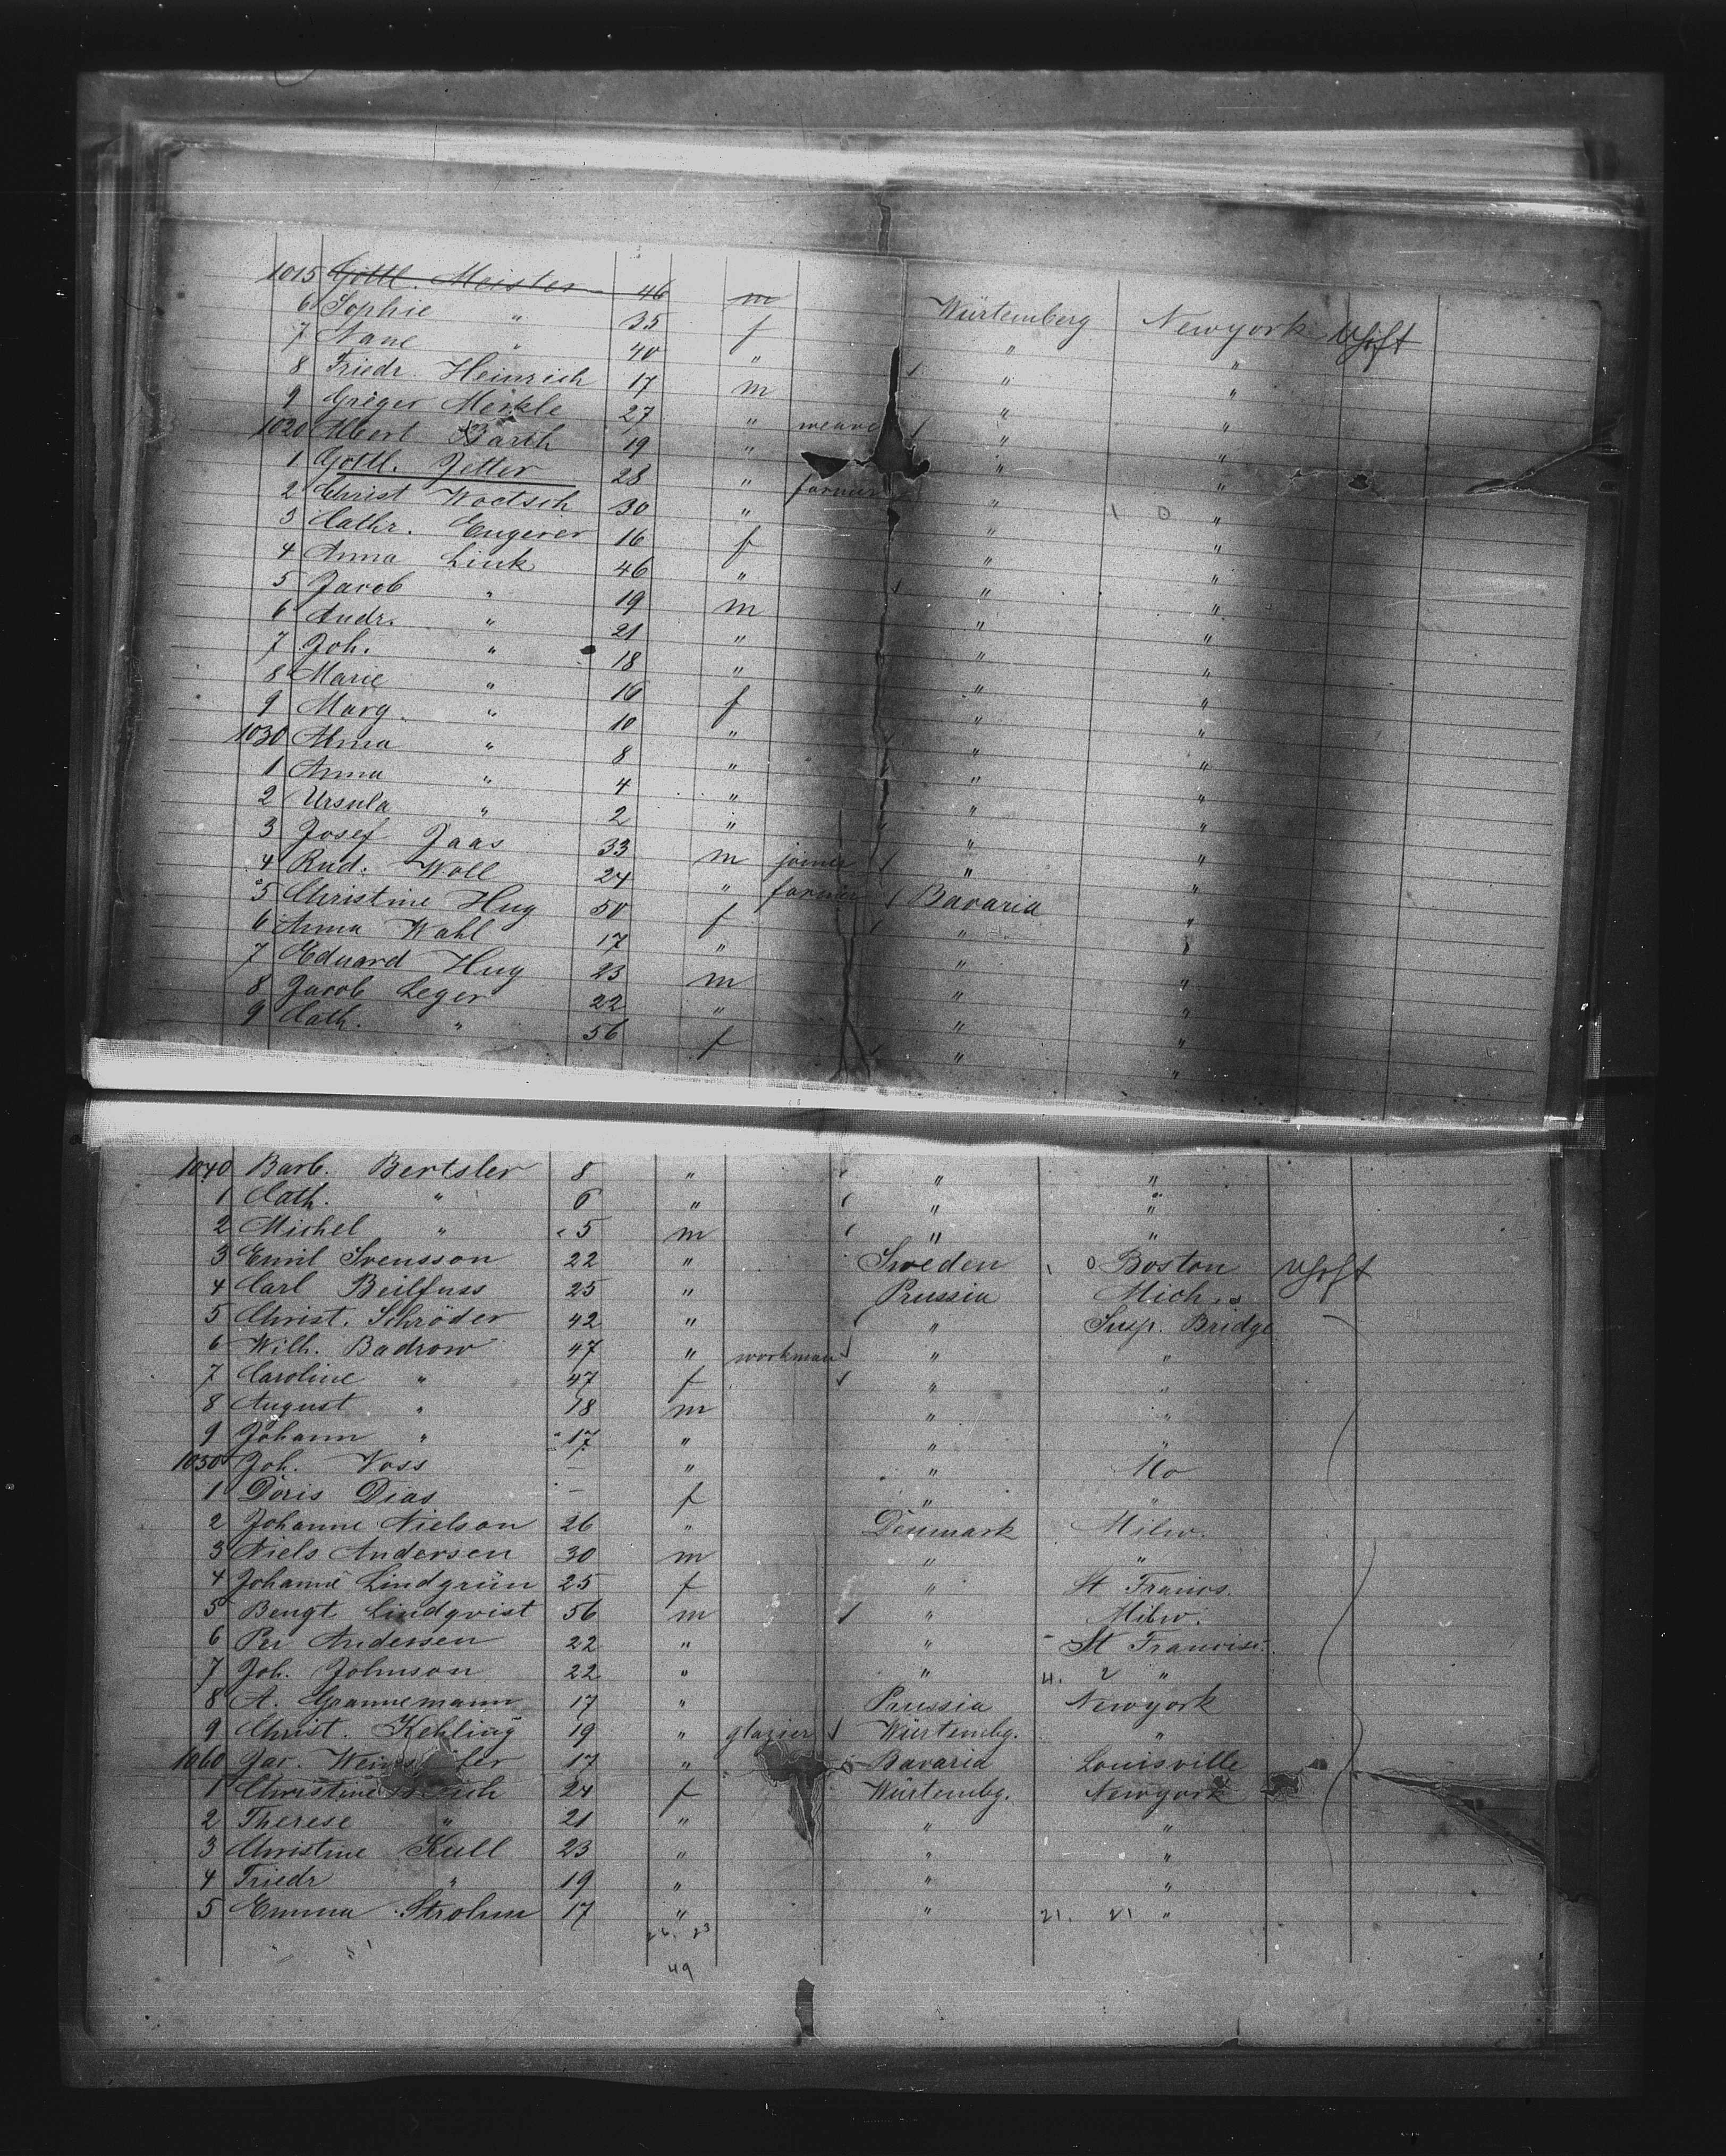 1015 Gottl. Meister 46 m Würtemberg Newyork
6 Sophie " 35 f " "
7 Nane " 40 " " "
8 Friedr. Heinrich 17 m " "
9 Greger Merkle 27 " weaver " "
1020 Albert Barth 19 " " "
1 Gottl. Jetter 28 " farmer " "
2 Christ Woetsch 30 " " "
3 Cathr. Eugerer 16 f " "
4 Anna Link 46 " " "
5 Jacob " 19 m " "
6 Andr. " 21 " " "
7 Joh. " 18 " " "
8 Marie " 16 f " "
9 Marg. " 10 " " "
1030 Alma " 8 " " "
1 Anna " 4 " " "
2 Ursula " 2 " " "
3 Josef Jaas 33 m joiner " "
4 Rud. Woll 24 " farmer Bavaria "
5 Christine Hug 50 f " "
6 Anna Wahl 17 " " "
7 Eduard Hug 23 m " "
8 Jacob Leger 22 " " "
9 Cath. " 56 f " "
1040 Barb. Bertsler 8 " " "
1 Cath. " 6 " " "
2 Michel " 5 m " "
3 Emil Svensson 22 " Sweden Boston
4 Carl Beilfuss 25 " Prussia Mich
5 Christ. Schröder 42 " " Susp. Bridge
6 Wilh. Badrow 47 " workman " "
7 Caroline " 47 f " "
8 August " 18 m " "
9 Johann " 17 " " "
1050 Joh. Voss — " " Mo
1 Doris Dias — f " "
2 Johanne Nielson 26 " Denmark Milw.
3 Niels Andersen 30 m " "
4 Johanne Lindgrün 25 f " St Francs.
5 Bengt Lindqvist 56 m " Milw.
6 Per Andersen 22 " " St Francisc.
7 Joh. Johnson 22 " " "
8 A. Grannemann 17 " Prussia Newyork
9 Christ. Kehling 19 " glazier Würtembg. "
1060 Jac. 17 " Bavaria Louisville
1 Christine 24 f Würtembg. Newyork
2 Therese " 21 " " "
3 Christine Kull 23 " " "
4 Friedr " 19 " " "
5 Emma Strohm 17 " " 21. 21 "
26. 23
49